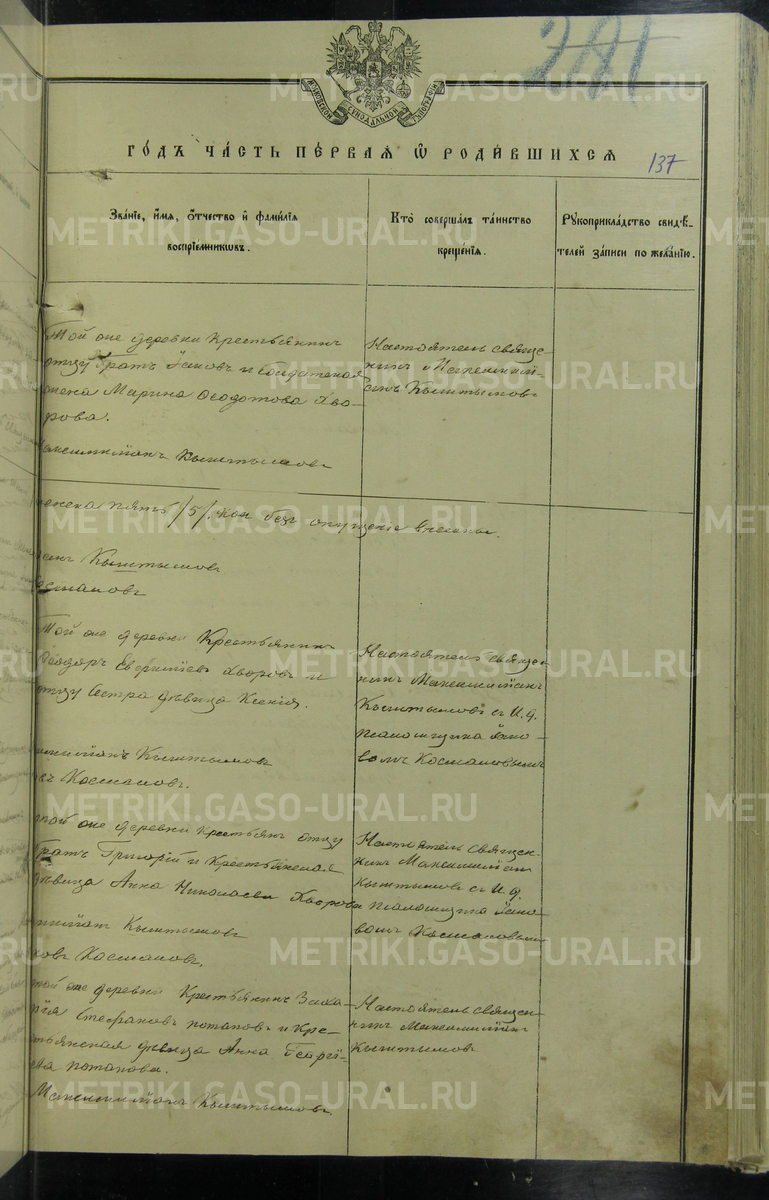 281
МОСКОВСКОЙ СѴНОДАЛЬНОЙ ТѴПОГРАФІИ
METRIKI.GASO-URAL.RU
го́дъ ча́сть пе́рвая ѡ роди́вшихся
137
Зва́ніе, и́мя, о́тчество и фами́лія
воспріе́мниковъ.
Кто̀ соверша́лъ та́инство
креще́нія.
Рꙋкоприкла́дство свидѣ́-
телей за́писи по жела́нію.
Той же деревни Крестьянинъ
отцу братъ Іаковъ и солдатская
жена Марина Ѳеодотова Хво-
рова.
Кыштымовъ
Настоятель священ-
никъ
Кыштымовъ
пять /5/. коп безъ
Кыштымовъ
Космаковъ
Той же деревни Крестьянинъ
Ѳеодоръ Хворовъ и
отцу сестра дѣвица Ксенія.
Кыштымовъ
Космаковъ.
Настоятель священ-
никъ Максимиліанъ
Кыштымовъ съ И. д.
псаломщика Іако-
вомъ Космаковымъ
той же деревни Крестьян. отцу
братъ Григорій и Крестьянская
дѣвица Анна Николаева Хворова
Кыштымовъ
Космаковъ.
Настоятель священ-
никъ Максимиліанъ
Кыштымовъ съ И. д.
псаломщика Іако-
вомъ Космаковымъ
той же деревни Крестьянинъ Заха-
рія Стефановъ Потаповъ и Кре-
стьянская дѣвица Анна Георгі-
ева Потапова.
Максимиліанъ Кыштымовъ.
Настоятель священ-
никъ Максимиліанъ
Кыштымовъ